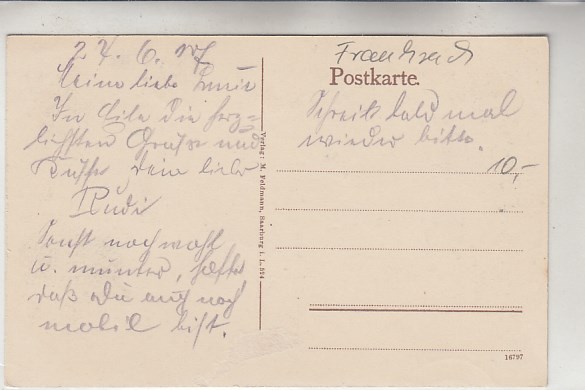 24.6.17
Meine liebe
In Eile die herz=
lichsten Grüße und
Küsse dein lieber
Rudi
Sonst noch wohl
u. munter, hoffe
daß Du auch noch
mobil bist.
Verlag: M. Feldmann, Saarburg i. L. 594
Frankreich
Postkarte.
Schreib bald mal
wieder bitte.
10,-
16797